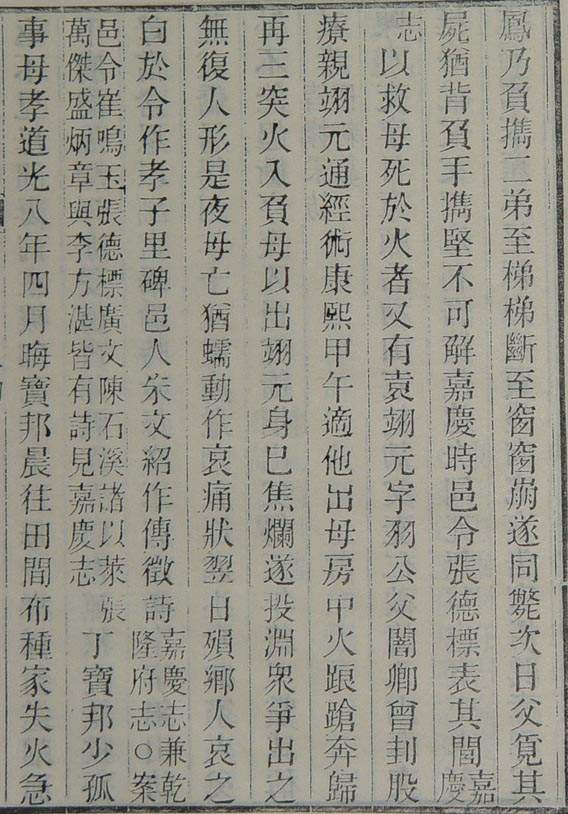 鳳乃負攜二弟至梯梯斷至窗窗崩遂同斃次日父覓其
屍猶背負手攜堅不可解嘉慶時邑令張德標表其閭嘉慶
志以救母死於火者又有袁翊元字羽公父闇卿曾刲股
療親翊元通經術康熙甲午適他出母房中火踉蹌奔歸
再三突火入負母以出翊元身已焦爛遂投淵衆爭出之
無復人形是夜母亡猶蠕動作哀痛狀翌日殞鄉人哀之
白於令作孝子里碑邑人朱文紹作傳徵詩嘉慶志兼乾隆府志○案
邑令崔鳴玉張德標廣文陳石溪諸以萊張萬傑盛炳章與李方湛皆有詩見嘉慶志丁寶邦少孤
事母孝道光八年四月晦寶邦晨往田間布種家失火急